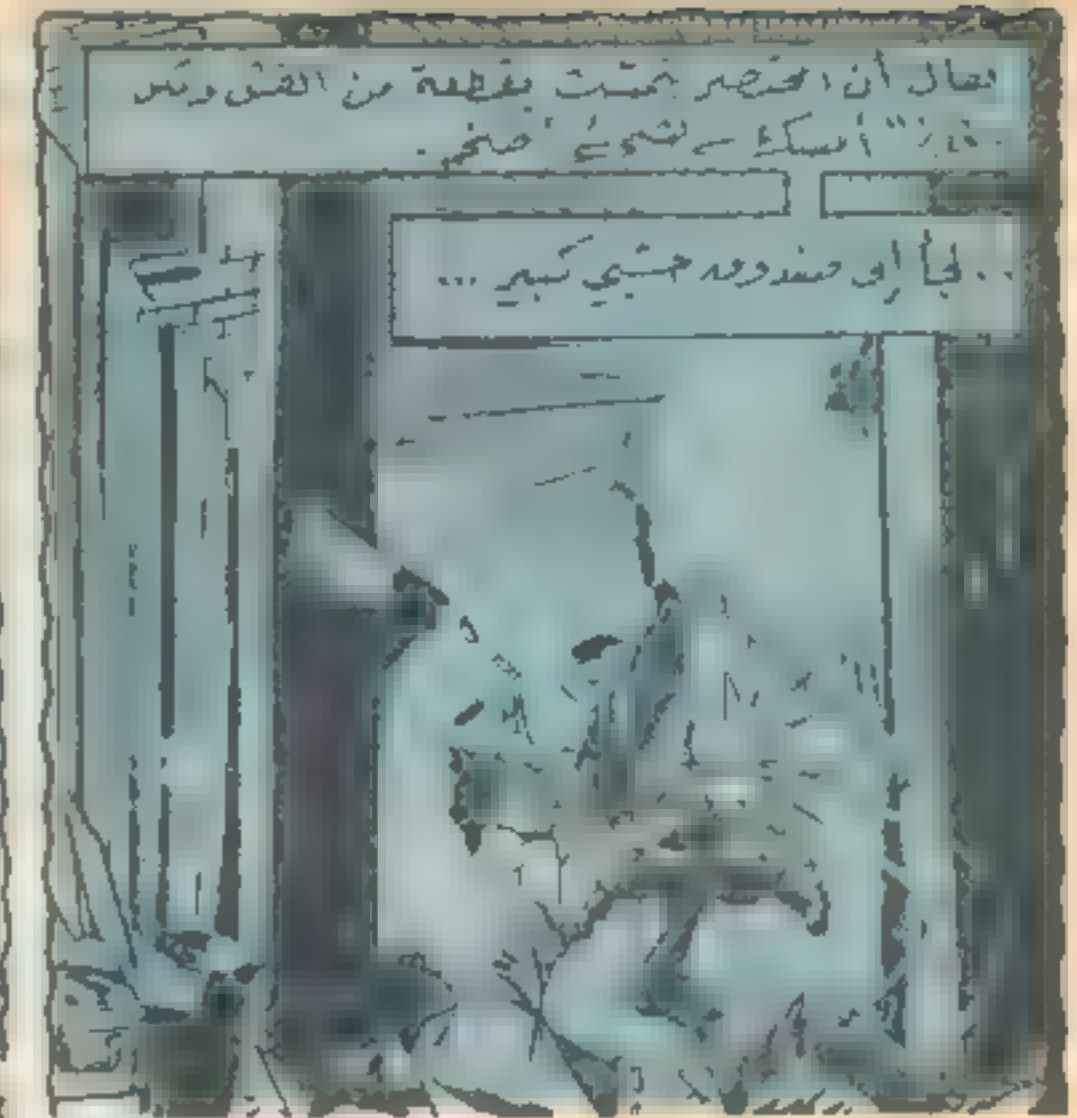 يقال أن المحتضر يتشبث بقطعة من القش وقد
أمسكت بشيء ضخم.
.. لجأ إلى صندوق خشبي كبير ...